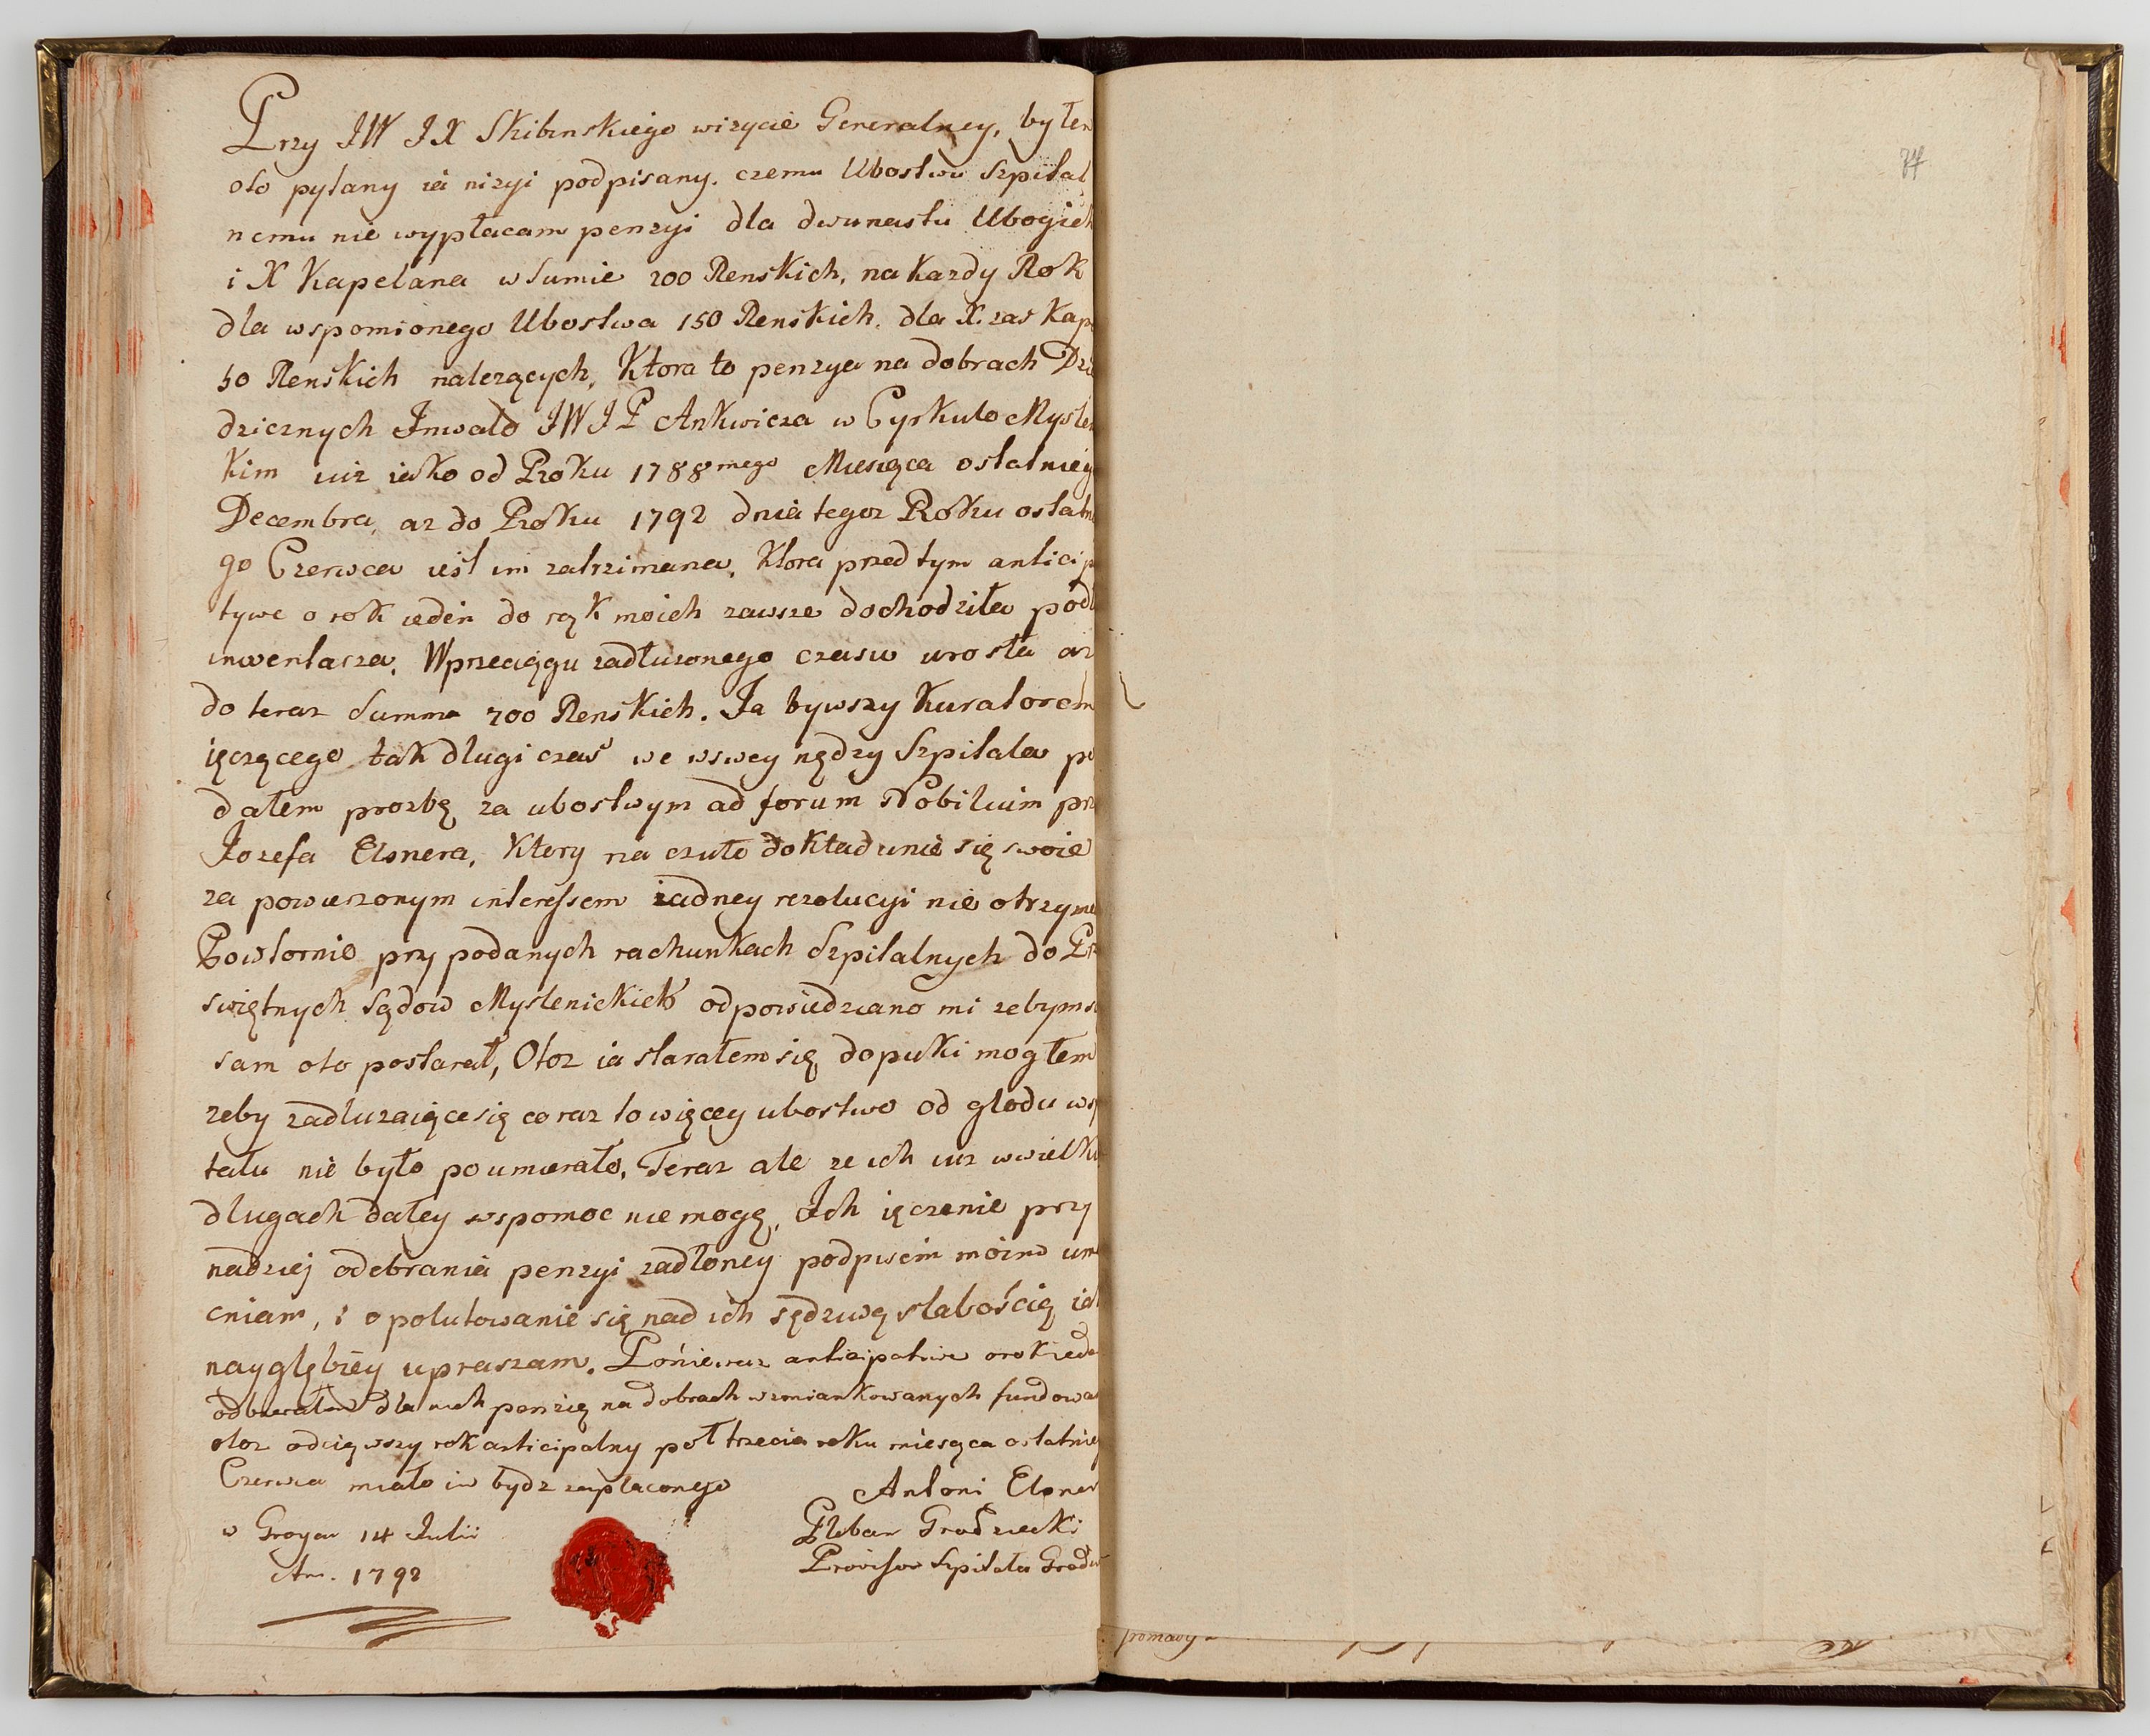 Przy JW JX Skibinskiego wizycie Generalney, byłem
oto pytany ia nizyi podpisany. czemu Ubostwu Szpital
nemu nie wypłacam penzyi dla dwunastu Ubogich
i X Kapelana w Sumie 200 Renskich, na kazdy Rok
dla wspomionego Ubostwa 150 Renskich. dla X. zas Kape
50 Renskich nalezących, Ktora to penzya na dobrach Dzie
dzicznych Inwałd JWJP Ankwicza w Cyrkule Myslen
kim iuz iako od Roku 1788mego Miesiąca ostatniego
Decembra, az do Roku 1792 dnia tegoz Roku ostatnie
go Czerwca iest im zatrzimana, Ktora przed tym anticipa
tywe o rok ieden do rąk moich zawsze dochodziła podł
inwentarza. W przeciągu zadłuzonego czasu urosła az
do teraz Summa 700 Renskich. Ja bywszy Kuratorem
ięczącego tak długi czas we wswey nędzy Szpitala po
dałem prozbę za ubostwym ad forum Nobilium prz
Jozefa Elsnera, Ktory na czułe dokładunie się swoie
za powierzonym interessem żadney rezolucyi nie otrzyma
Powtornie przy podanych rachunkach Szpitalnych do Prz
swiętnych Sądow Myslenickich odpowiedziano mi zebym si
sam oto postarał, Otoz ia starałem się dopuki mogłem
zeby zadluzaiące się coraz to więcey ubostwo od głodu wszp
talu nie było poumierało, Teraz ale ze ich iuz wwielki
dlugach daley wspomoc nie mogę, Ich ięczenie przy
nadziej odebrania penzyi zadłoney podpisem moim um
cniam, i o polutowanie się nad ich sędziwą słabością iak
nayglębiey upraszam. Poniewaz anticipative o rok ieden
odbierałem dla nich penzię na dobrach wzmiankowanych fundowa
otoz odciąwszy rok anticipalny poł trzecia roku miesąca ostatniego
Czerwca miało im bydz zapłaconego
Antoni Elsner
w Groycu 14 Julii
Pleban Grodziecki
An. 1792
Provisor Szpitala Grodz